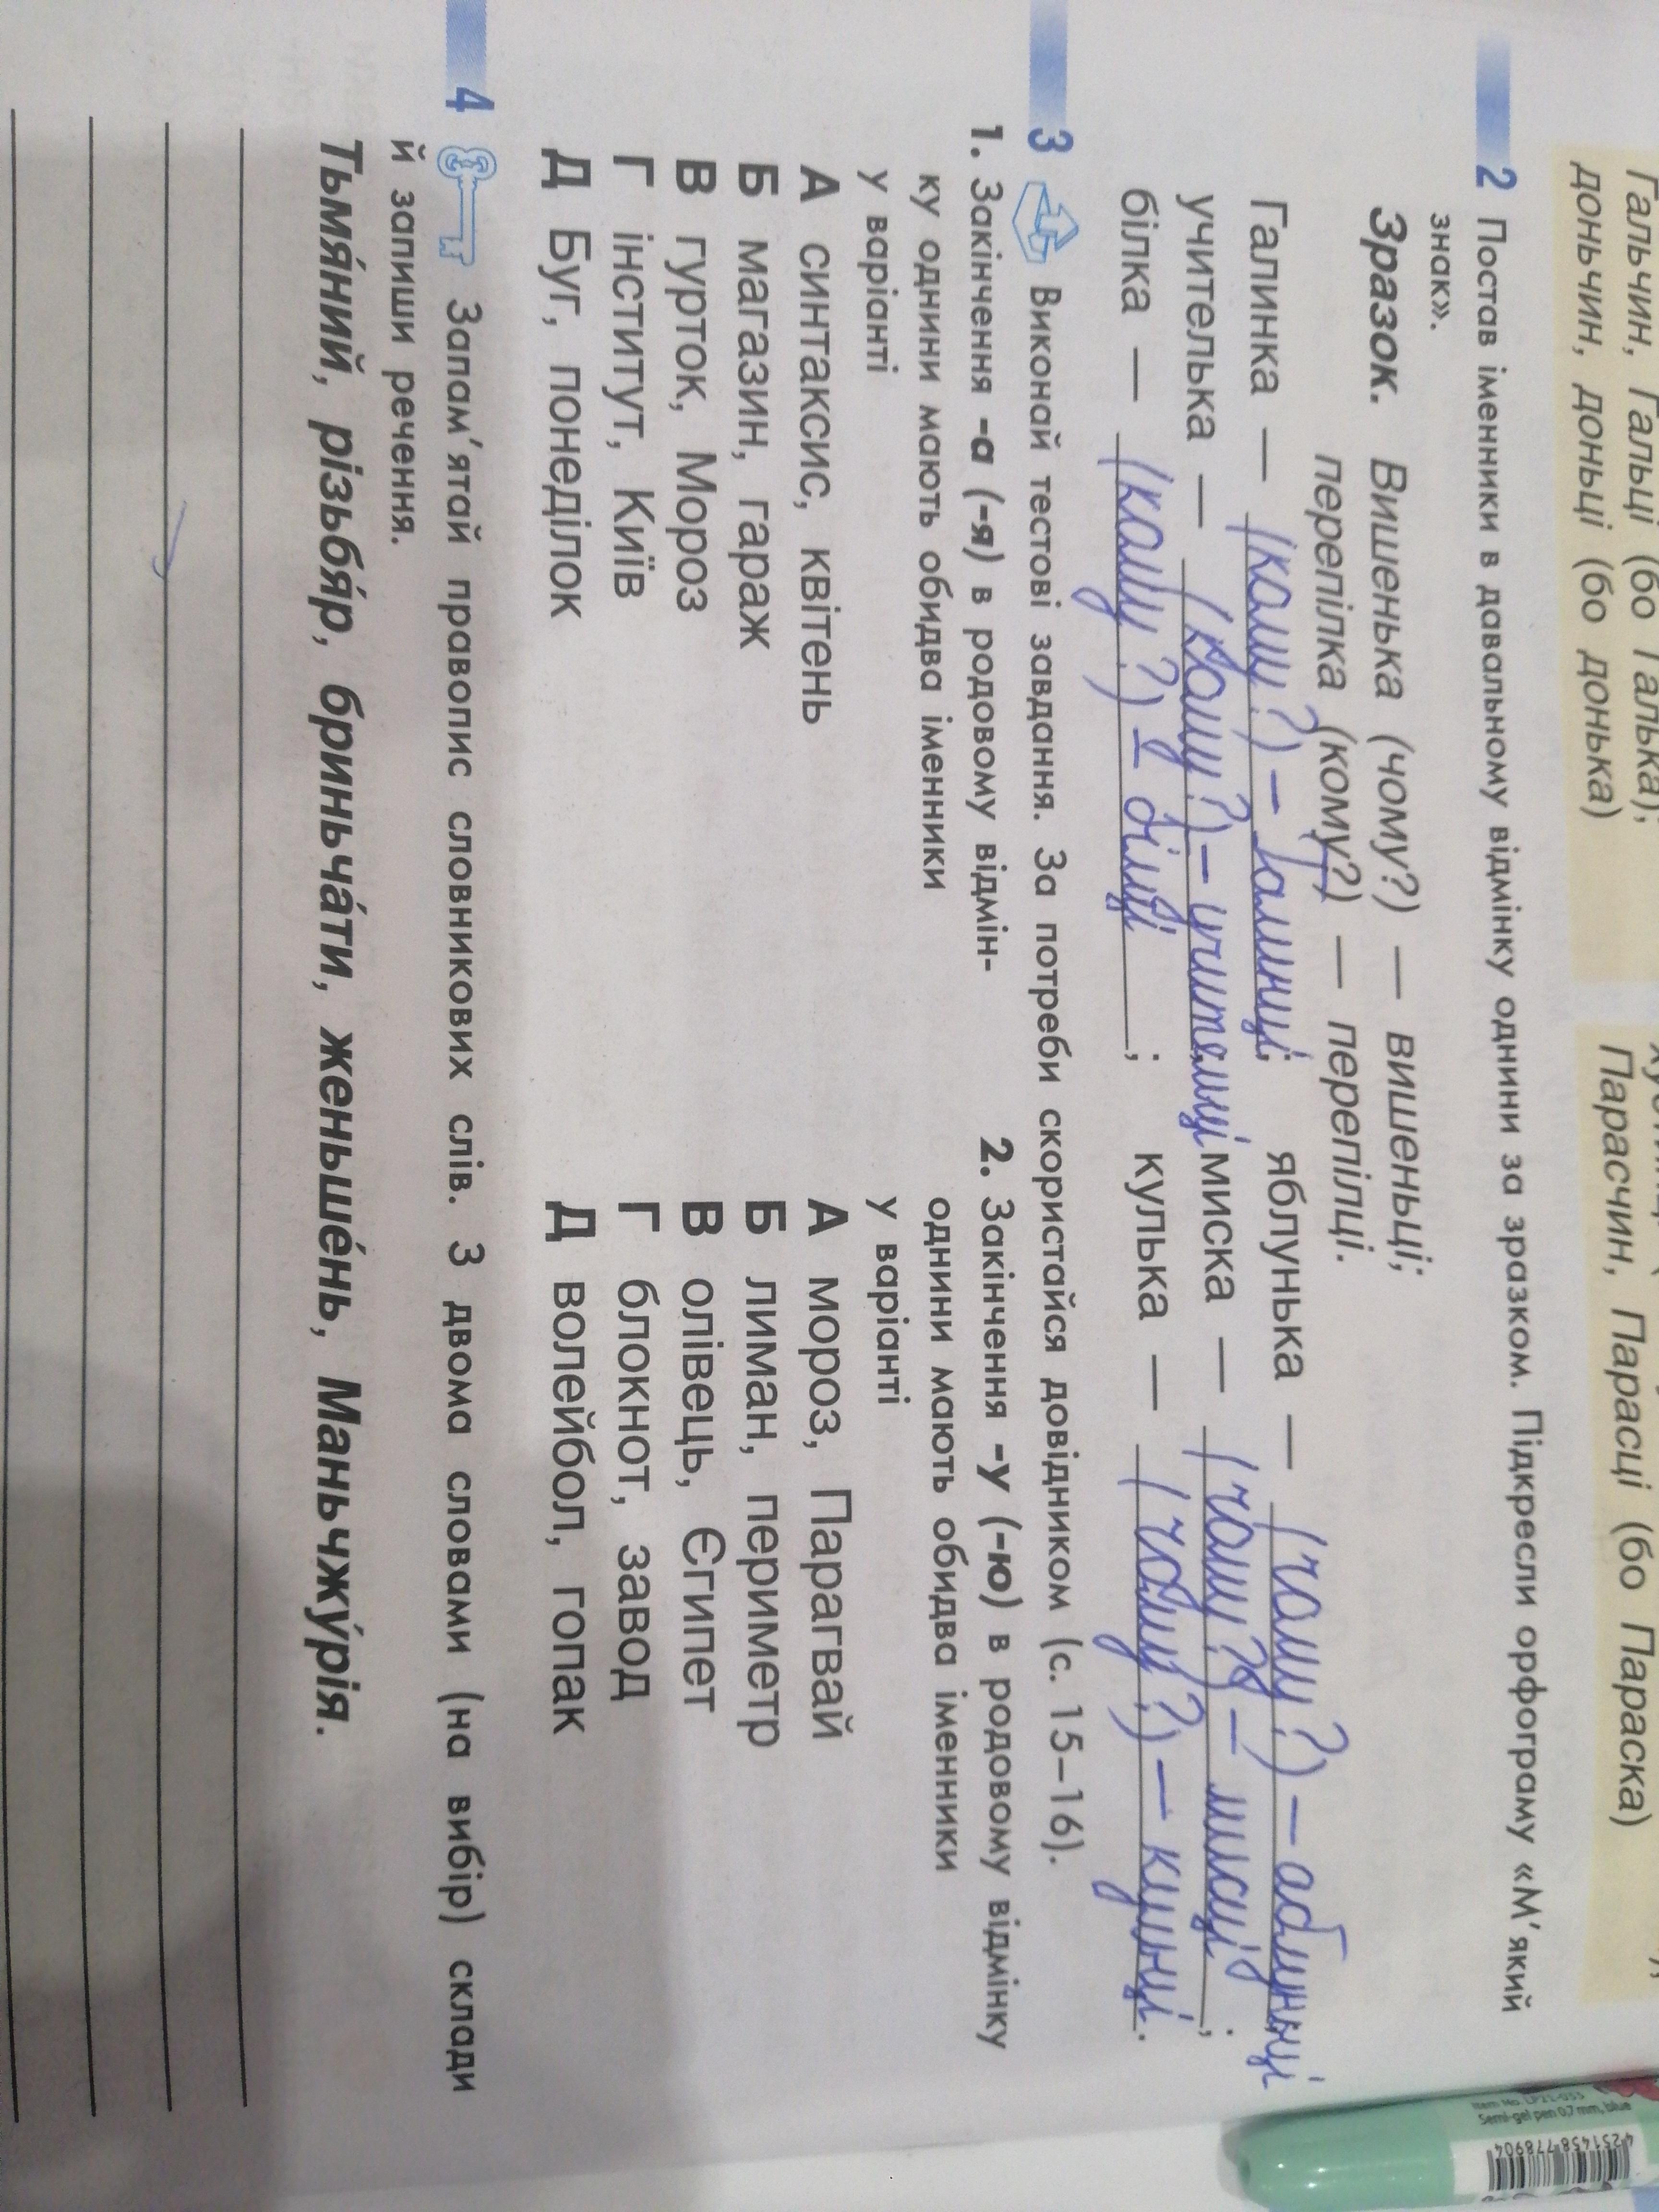 Гальчин, Гальці (бо Галька);
доньчин, доньці (бо донька)
Парасчин, Парасці (бо Параска)
2 Постав іменники в давальному відмінку однини за зразком. Підкресли орфограму «М'який
знак».
Зразок. Вишенька (чому?) — вишеньці;
перепілка (кому?) — перепілці.
Галинка — (кому?) – Галинці; яблунька — (чому?) – яблуньці
учителька — (кому?) – учительці миска — (чому?) – мисці;
білка — (кому?) – білці; кулька — (чому?) –
3 Виконай тестові завдання. За потреби скористайся довідником (с. 15–16).
1. Закінчення -а (-я) в родовому відмін-
ку однини мають обидва іменники
у варіанті
А синтаксис, квітень
Б магазин, гараж
В гурток, Мороз
Г інститут, Київ
Д Буг, понеділок
2. Закінчення -у (-ю) в родовому відмінку
однини мають обидва іменники
у варіанті
А мороз, Парагвай
Б лиман, периметр
В олівець, Єгипет
Г блокнот, завод
Д волейбол, гопак
4 Запам'ятай правопис словникових слів. З двома словами (на вибір) склади
й запиши речення.
Тьмя́ний, різьбя́р, бриньча́ти, женьше́нь, Маньчжу́рія.
Semi-gel pen 0,7 mm, blue
4 251458 778904